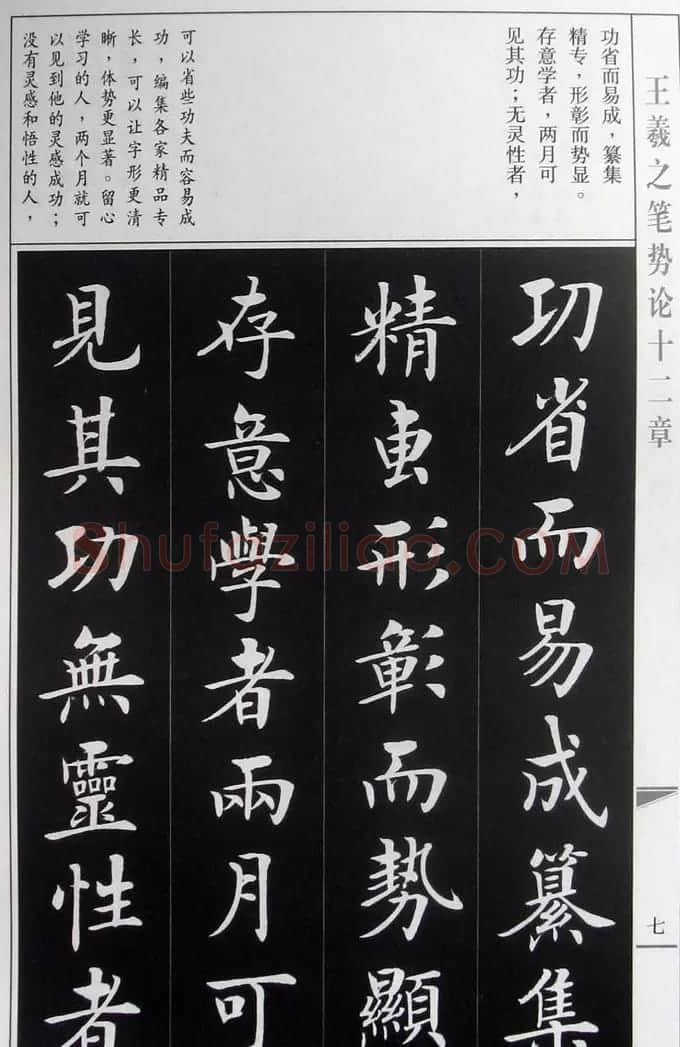 王羲之笔势论十二章
七
功省而易成，纂集
精专，形彰而势显。
存意学者，两月可
见其功；无灵性者，
可以省些功夫而容易成
功，编集各家精品专
长，可以让字形更清
晰，体势更显著。留心
学习的人，两个月就可
以见到他的灵感成功；
没有灵感和悟性的人，
功省而易成纂集
精專形彰而勢顯
存意學者兩月可
見其功無靈性者
Shufaziliao.COM